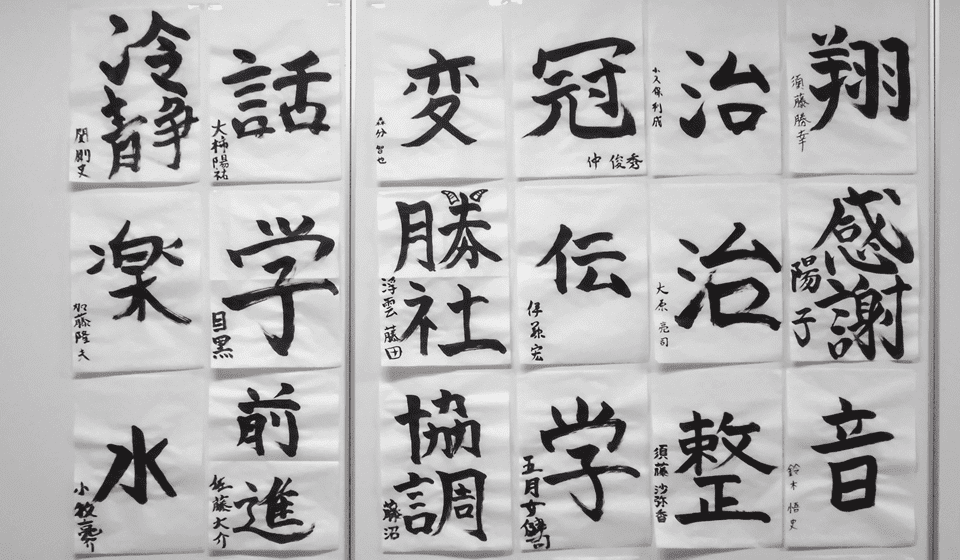 冷静
関 剛史
話
大柿陽祐
変
智也
冠
仲 俊秀
治
小久保利成
翔
須藤勝幸
楽
加藤隆夫
学
目黒
勝社
浮雲 藤田
伝
伊藤 宏
治
大原 亮司
感謝
陽子
水
小牧亮介
前進
佐藤大介
協調
藤沼
学
五月女健司
整
須藤 沙弥香
音
鈴木 悟史